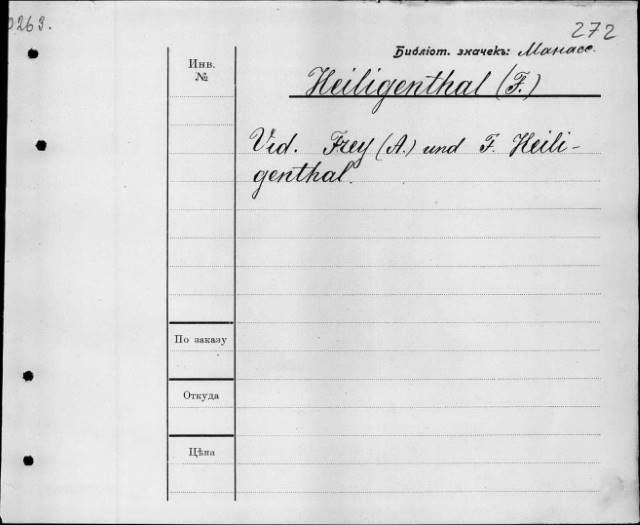 0263.
272
Библіот. значекъ: Манасс.
Инв.
№
Heiligenthal (F.)
Vid. Frey (A.) und F. Heili-
genthal.
По заказу
Откуда
Цѣна